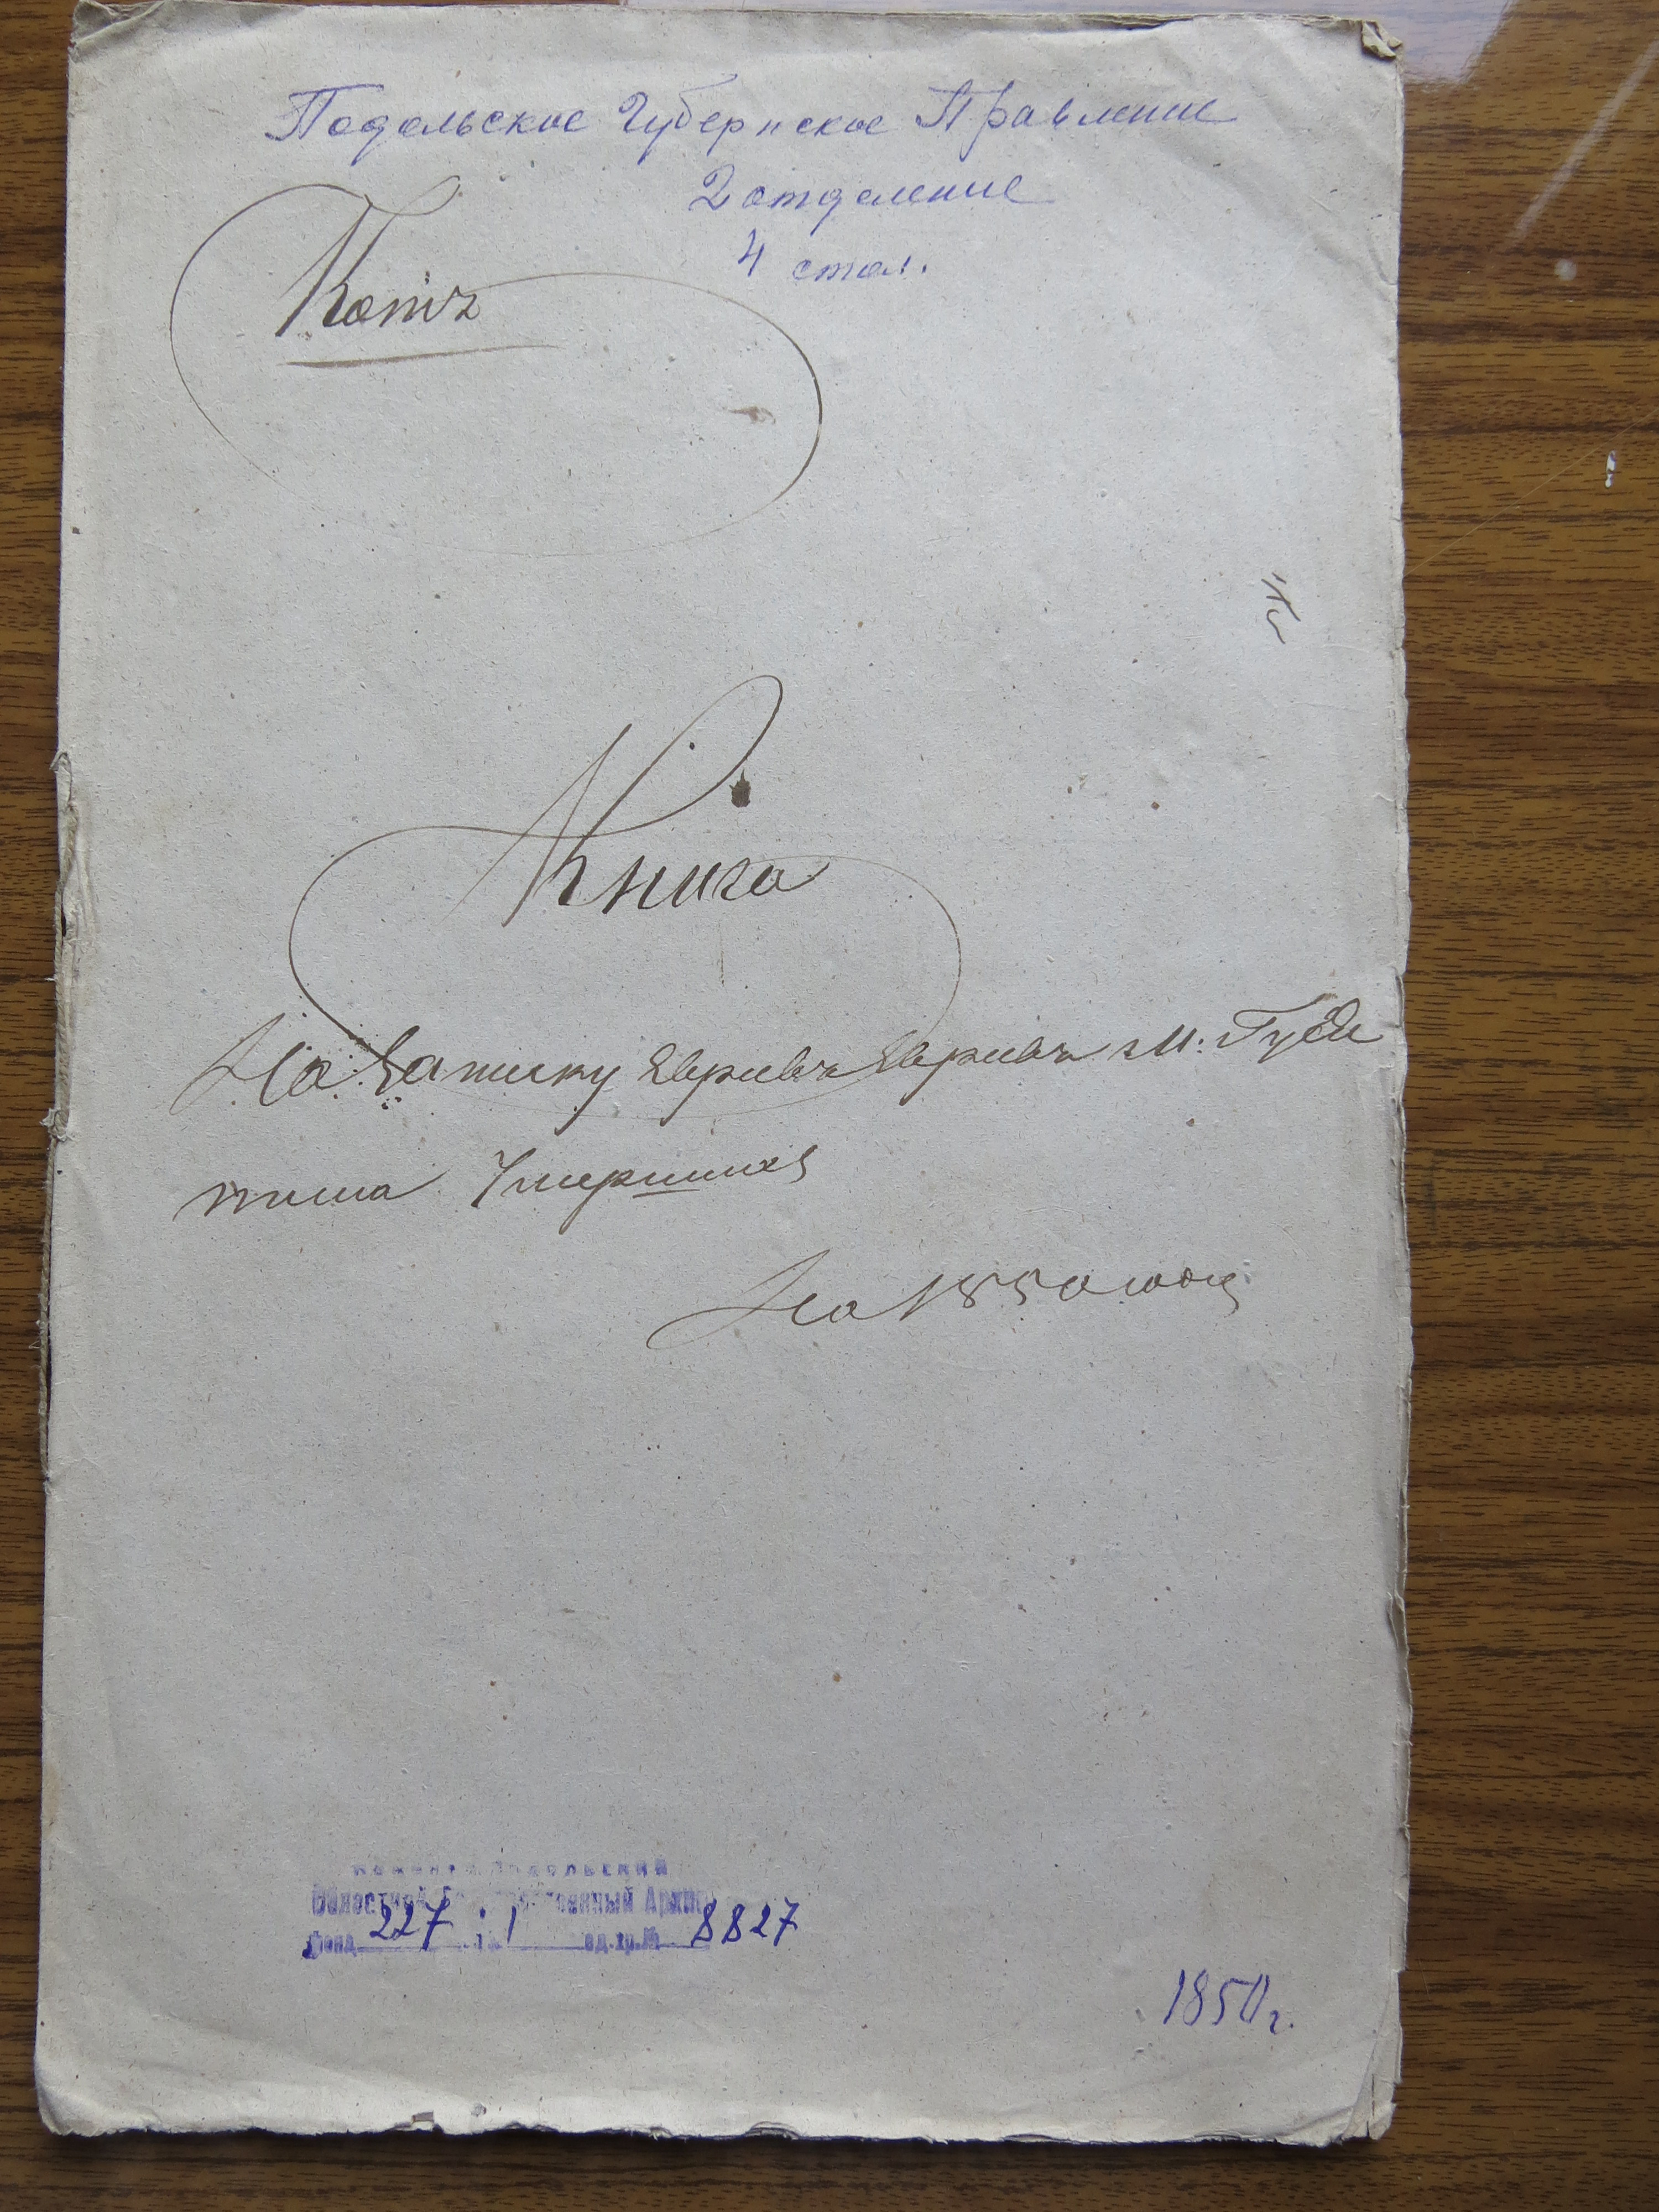 Подольское Губернское Правление
2 отделение
4 стол.
Копіъ
Книга
На Записку Евреивъ Евреивъ М: Гуса
тина Умершихъ
На 1850 годъ
Каменец Подольский
Областной Государственный Архив
фонд 227 оп. 1 ед.хр.№ 8827
1850 г.